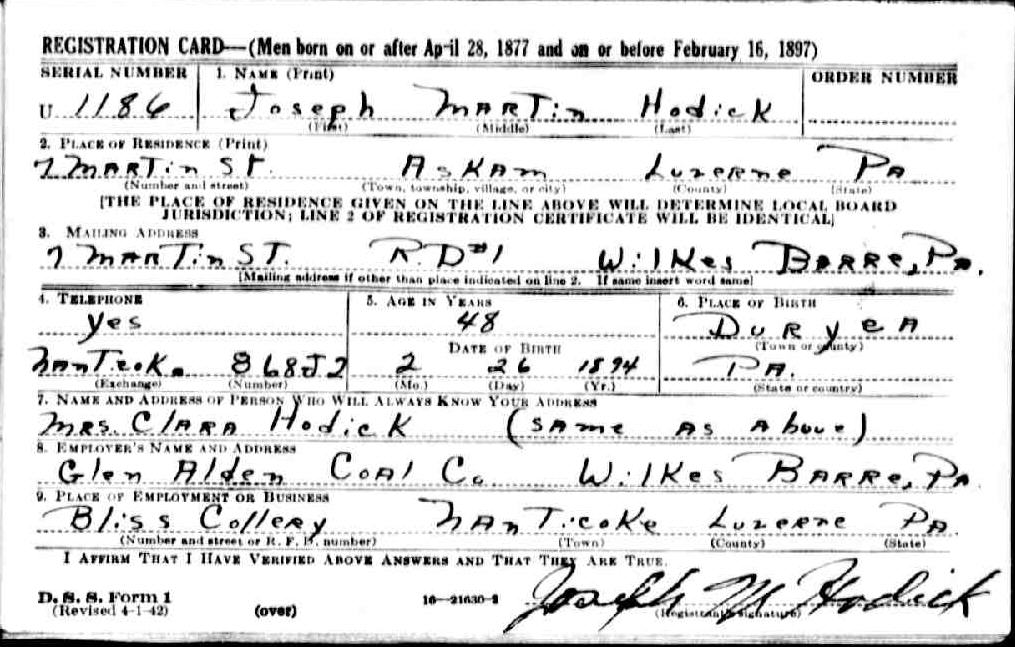 REGISTRATION CARD—(Men born on or after April 28, 1877 and on or before February 16, 1897)
SERIAL NUMBER 1. NAME (Print) ORDER NUMBER
U 1186 Joseph MARTin Hodick
(First) (Middle) (Last)
2. PLACE OF RESIDENCE (Print)
7 MARTin ST. ASKAM Luzerne PA
(Number and street) (Town, township, village, or city) (County) (State)
[THE PLACE OF RESIDENCE GIVEN ON THE LINE ABOVE WILL DETERMINE LOCAL BOARD
JURISDICTION; LINE 2 OF REGISTRATION CERTIFICATE WILL BE IDENTICAL]
3. MAILING ADDRESS
7 MARTin ST. R.D#1 WilKes BARRE, PA.
[Mailing address if other than place indicated on line 2. If same insert word same]
4. TELEPHONE 5. AGE IN YEARS 6. PLACE OF BIRTH
yes 48 DuRyeA
DATE OF BIRTH (Town or county)
nanTicoke 868J2 2 26 1894 PA.
(Exchange) (Number) (Mo.) (Day) (Yr.) (State or country)
7. NAME AND ADDRESS OF PERSON WHO WILL ALWAYS KNOW YOUR ADDRESS
MRS. ClARA Hodick (SAME AS Above)
8. EMPLOYER'S NAME AND ADDRESS
Glen Alden COAl Co. WilKes BARRE, PA
9. PLACE OF EMPLOYMENT OR BUSINESS
Bliss Collery nanTicoKe Luzerne PA
(Number and street or R. F. D. number) (Town) (County) (State)
I AFFIRM THAT I HAVE VERIFIED ABOVE ANSWERS AND THAT THEY ARE TRUE.
D. S. S. Form 1
(Revised 4-1-42) (over) 16—21630-2 Joseph M Hodick
(Registrant's signature)